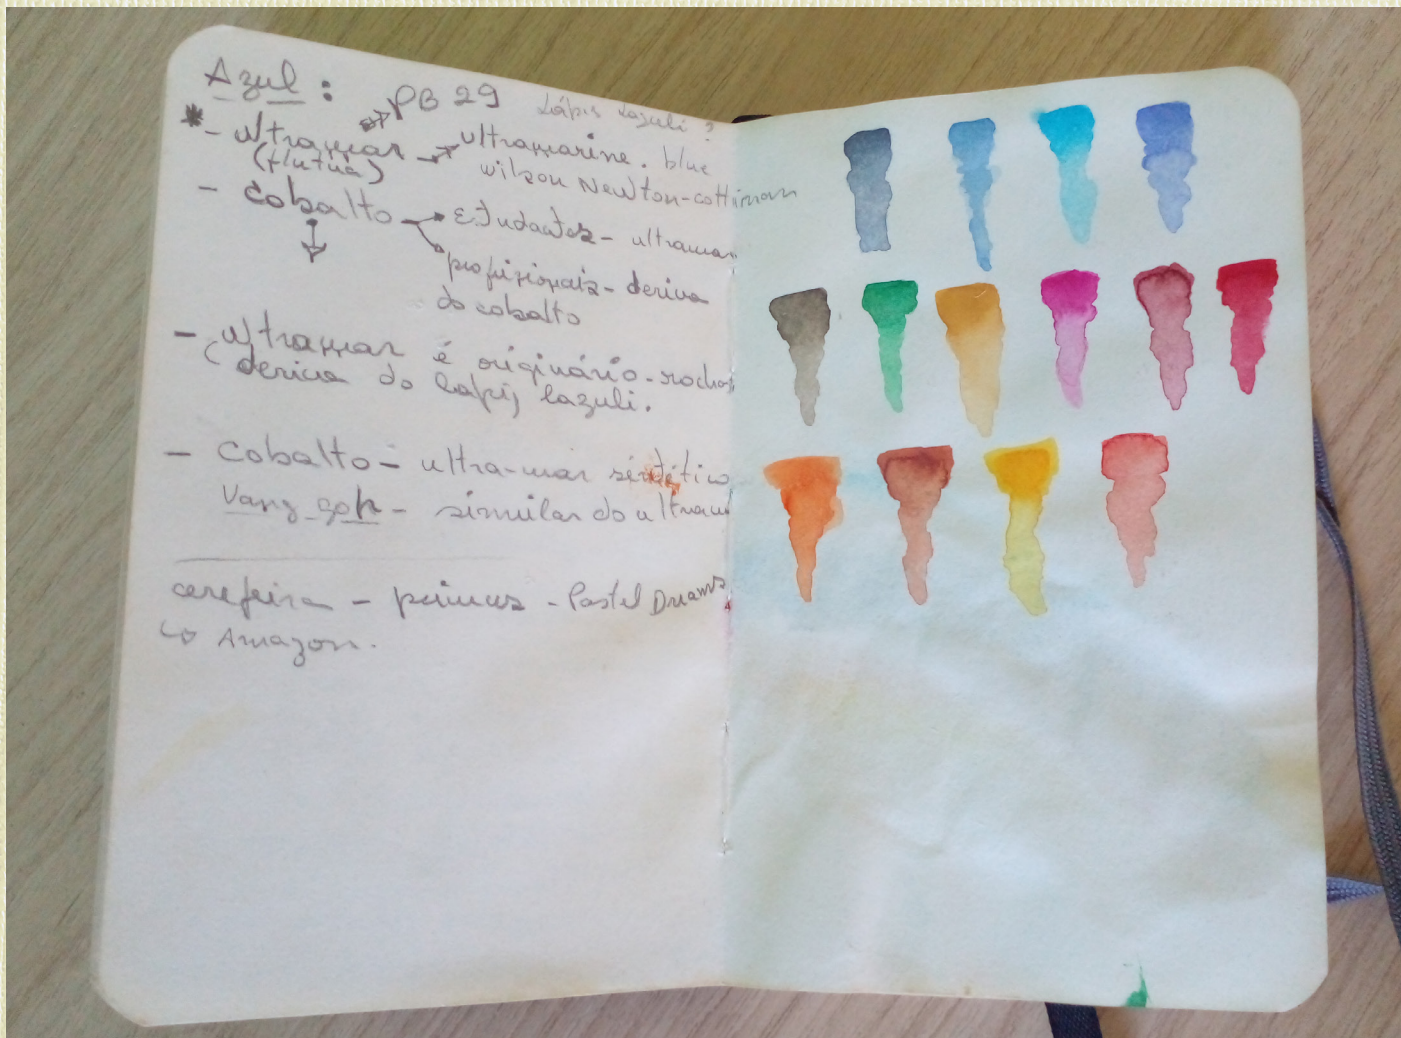 Azul:
PB 29 Lápis Lazuli ?
* - ultramar ultramarine. blue
(flutua) wilson Newton-cottiman
- cobalto Estudantes - ultramar
profisionais - deriva
do cobalto
- ultramar é originário - rochas
(deriva do lapis lazuli.
- Cobalto - ultra-mar sintético
Vang goh - similar do ultramar
cerejeira - primus - Pastel Dreams
Amazon.